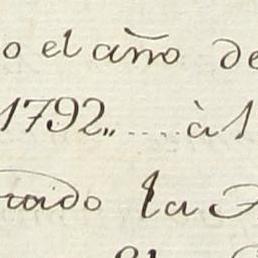 o el año de
1792,, .... à l
raido la